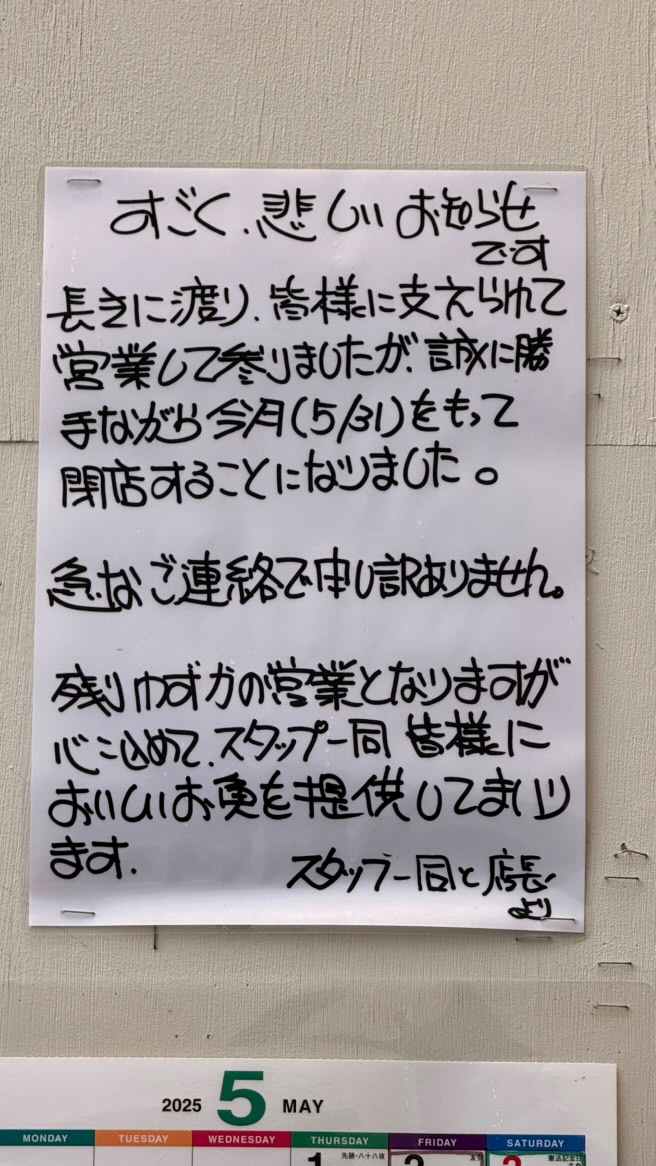 すごく、悲しいお知らせ
です
長きに渡り、皆様に支えられて
営業して参りましたが、誠に勝
手ながら今月(5/31)をもって
閉店することになりました。
急なご連絡で申し訳ありません。
残りわずかの営業となりますが
心こめて、スタッフ一同 皆様に
おいしいお魚を提供してまいり
ます.
スタッフ一同と店長
より
2025 5 MAY
MONDAY TUESDAY WEDNESDAY THURSDAY FRIDAY SATURDAY
1 先勝・八十八夜 2 友引 3 憲法記念日